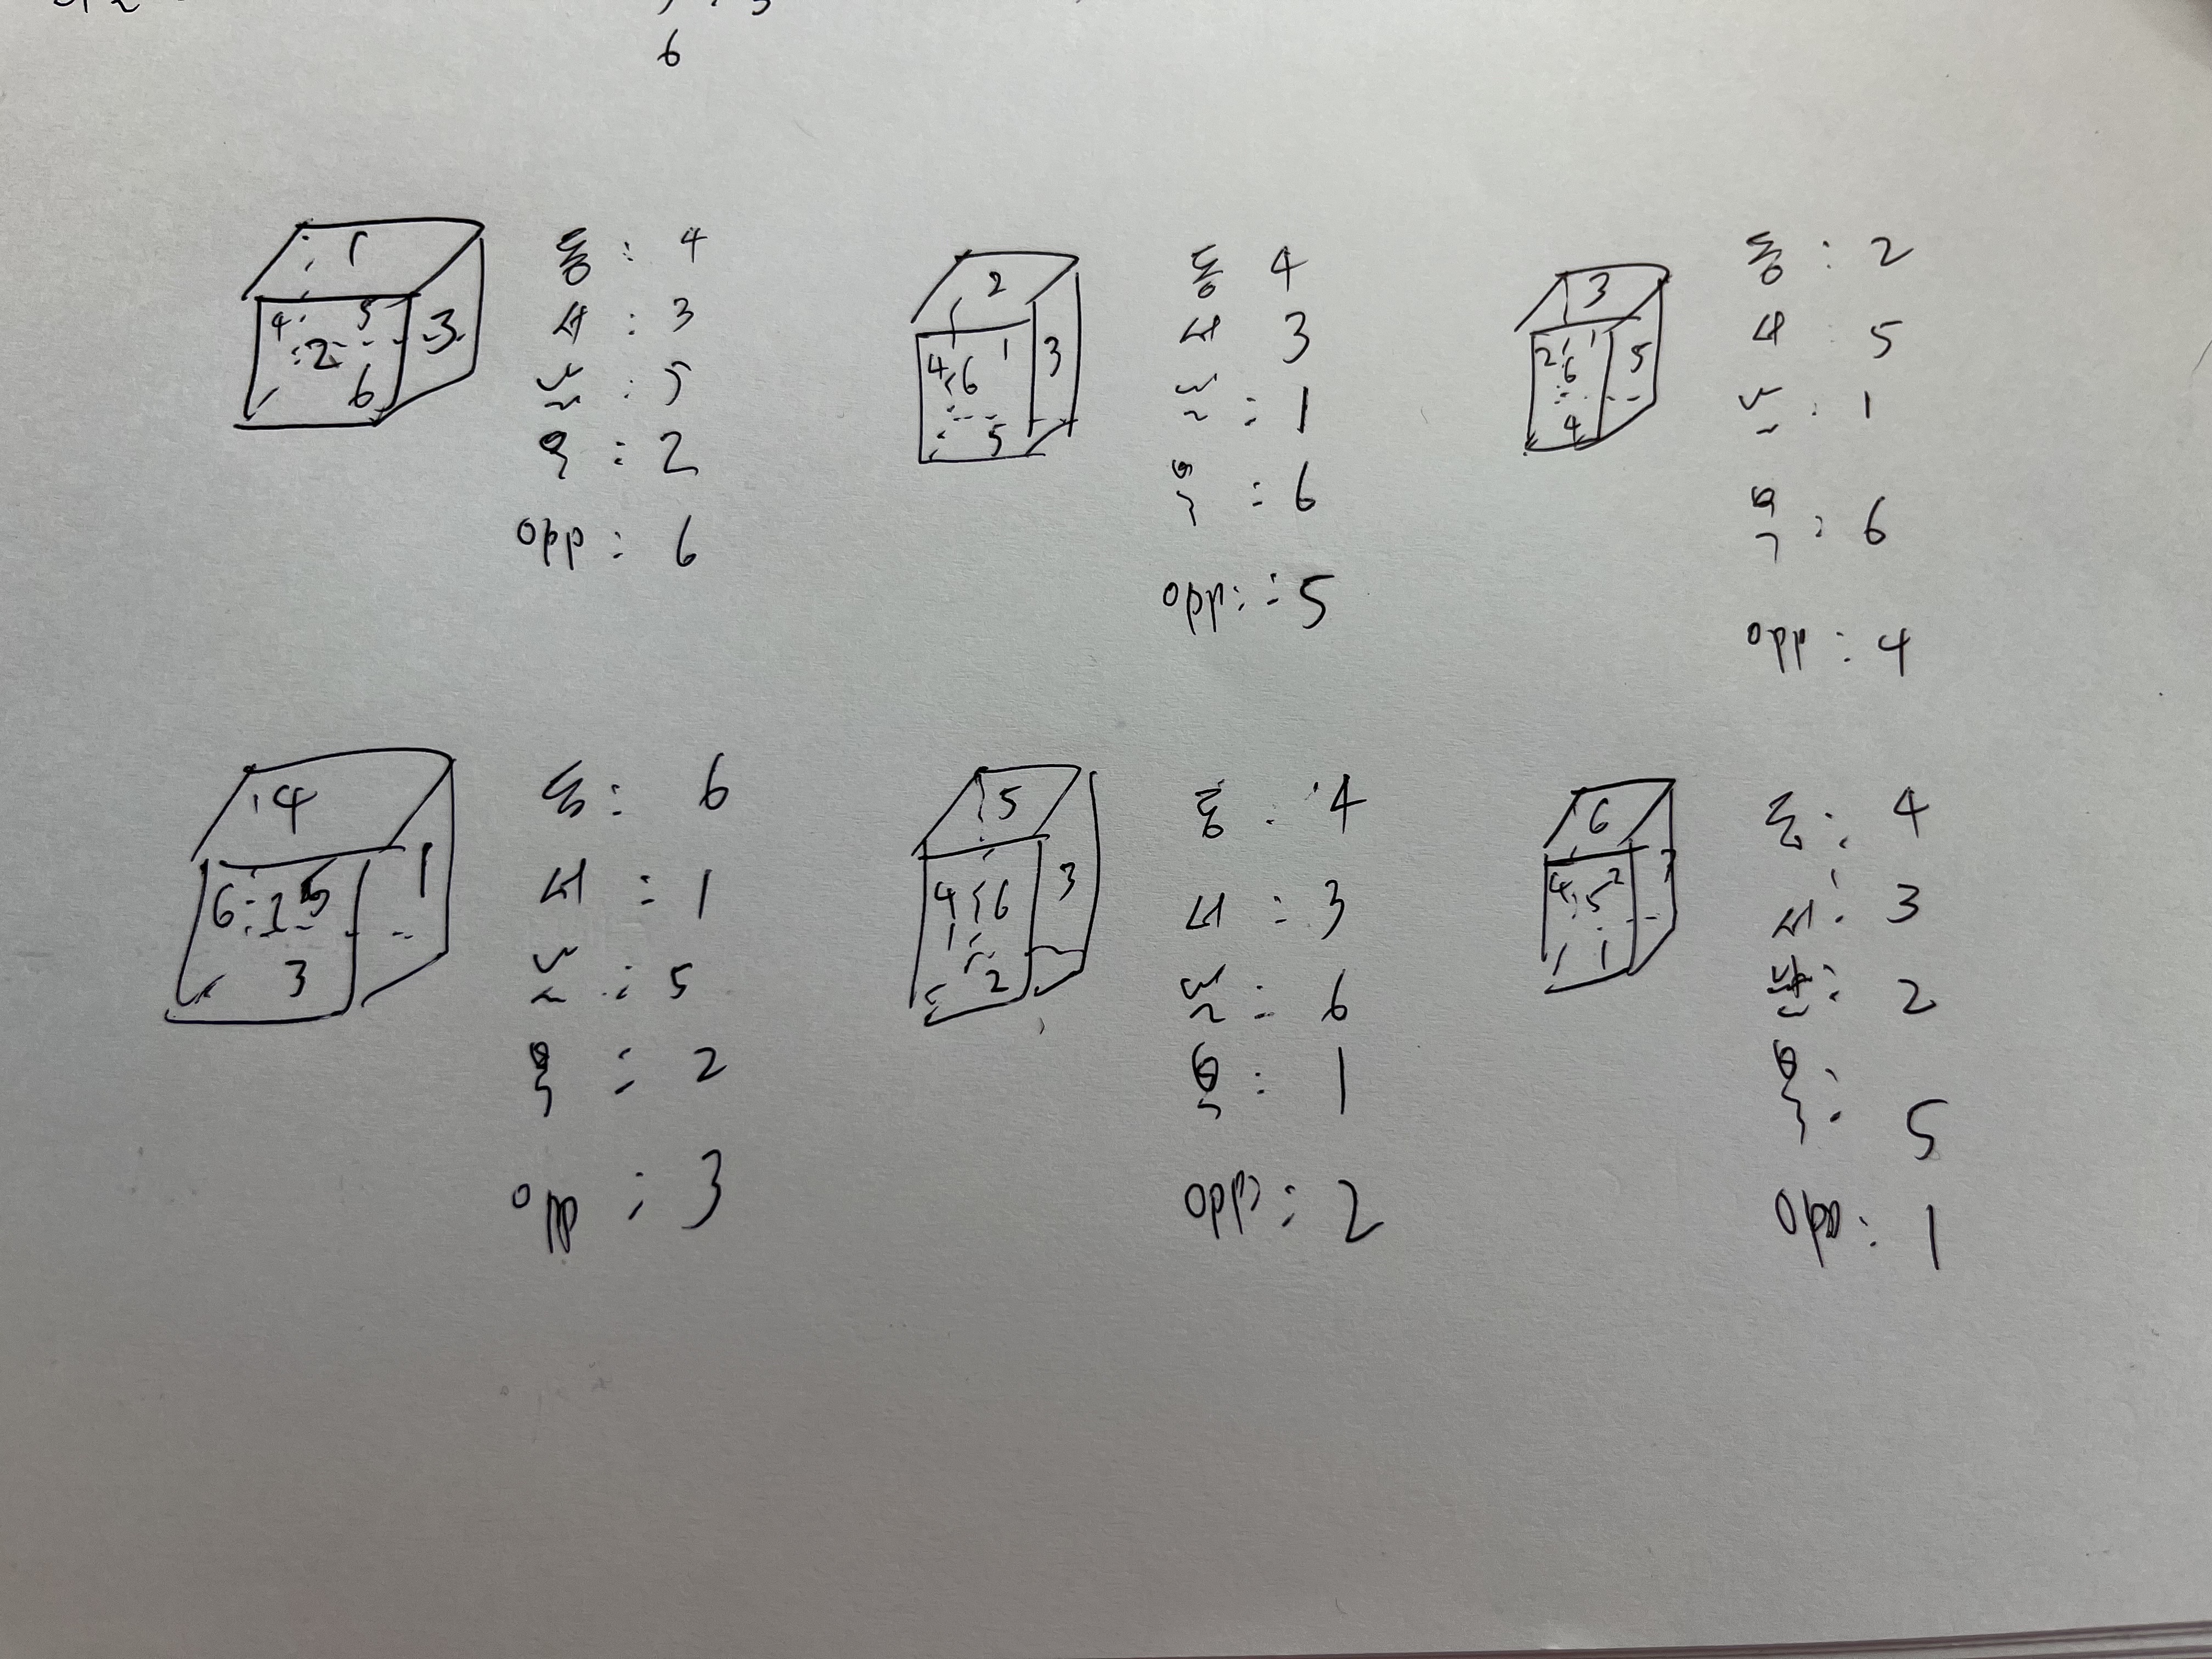 6
1
4 5
2
3
6
동 : 4
서 : 3
남 : 5
북 : 2
opp : 6
2
4 6 1
3
5
동 4
서 3
남 : 1
북 : 6
opp : 5
3
2 6 1
5
4
동 : 2
서 5
남 : 1
북 : 6
opp : 4
4
6 2 5
1
3
동 : 6
서 : 1
남 : 5
북 : 2
opp : 3
5
4 6
1
3
2
동 : 4
서 : 3
남 : 6
북 : 1
opp : 2
6
4 5 2
3
1
동 : 4
서 : 3
남 : 2
북 : 5
opp : 1